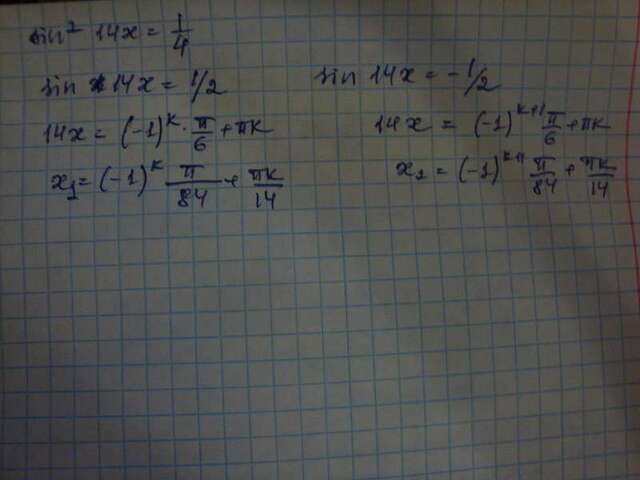 sin² 14x = 1/4
sin 14x = 1/2
14x = (-1)^k · π/6 + πk
x₁ = (-1)^k π/84 + πk/14
sin 14x = -1/2
14x = (-1)^(k+1) π/6 + πk
x₂ = (-1)^(k+1) π/84 + πk/14